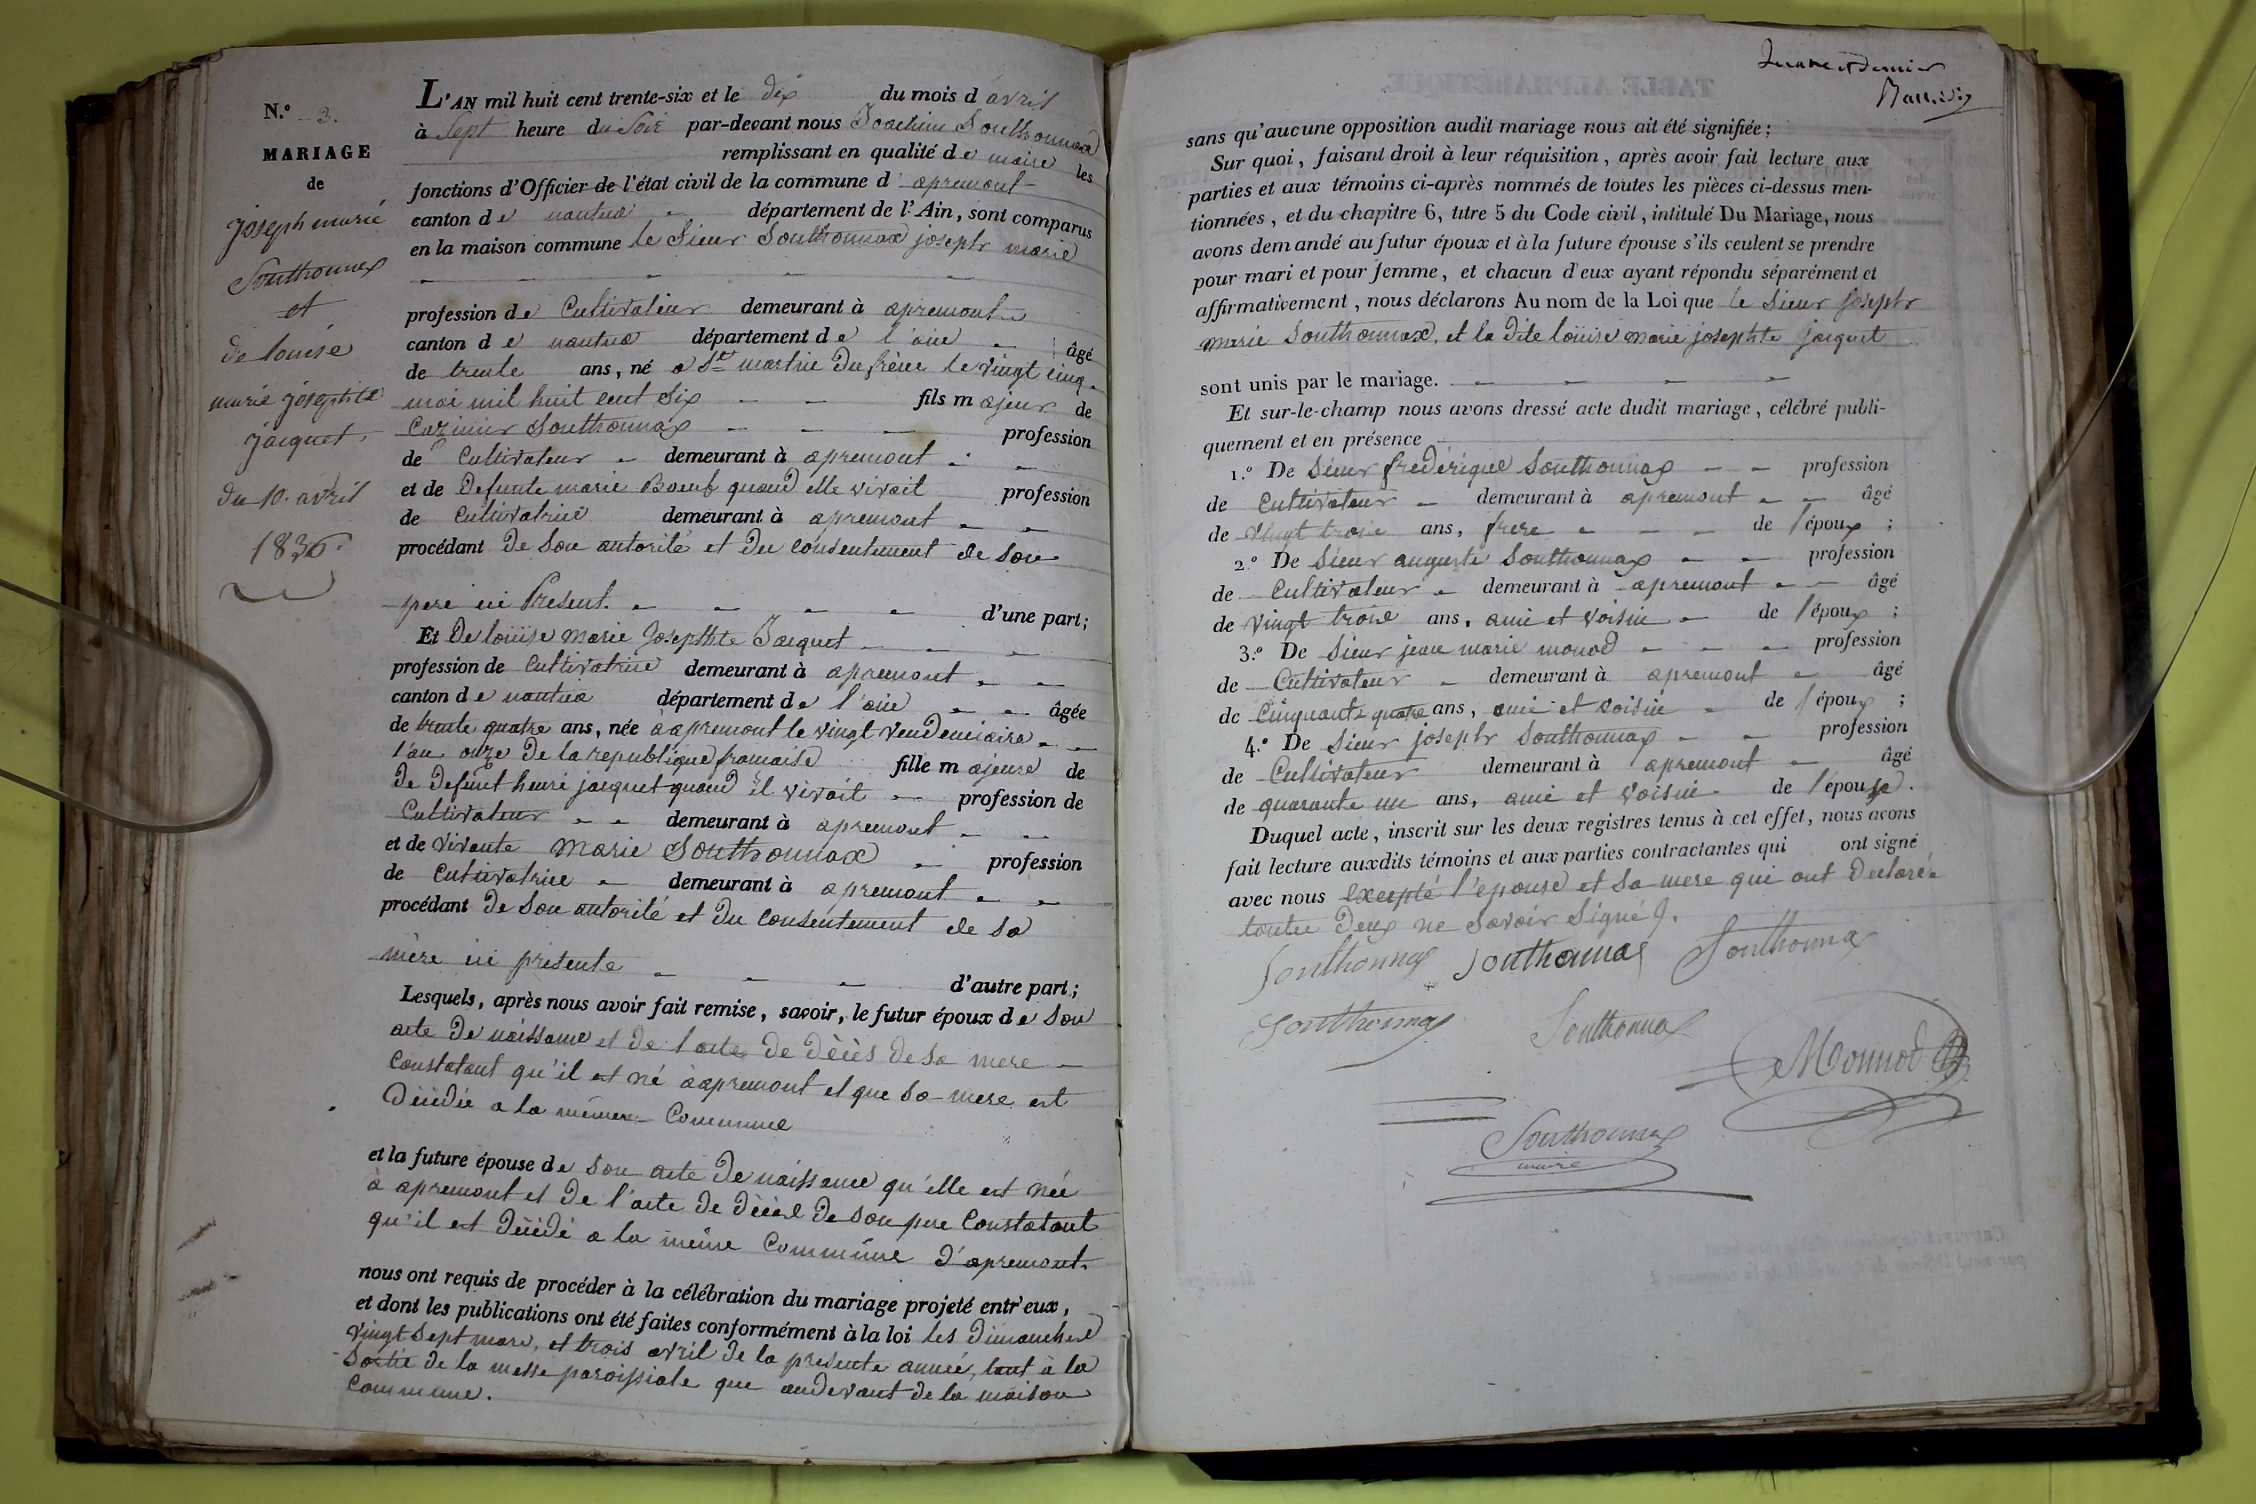 N.º 3.
MARIAGE
de
joseph marie
Southonnax
et
de louise
marie josephte
jacquet.
du 10. avril
1836.
L'AN mil huit cent trente-six et le dix du mois d'avril
à Sept heure du Soir par-devant nous Joachim Southonnax
remplissant en qualité de maire les
fonctions d'Officier de l'état civil de la commune d'apremont
canton de nantua département de l'Ain, sont comparus
en la maison commune le Sieur Southonnax joseph marie
profession de Cultivateur demeurant à apremont
canton de nantua département de l'ain âgé
de trente ans, né a St martin du frène le vingt cinq
mai mil huit cent Six fils majeur de
Cazimir Southonnax profession
de Cultivateur demeurant à apremont
et de Defunte marie Boeuf quand elle vivait profession
de Cultivatrice demeurant à apremont
procédant de Son autorité et du consentement de son
pere ici Présent. d'une part;
Et De loüise marie Josephte Jacquet
profession de Cultivatrice demeurant à apremont
canton de nantua département de l'ain âgée
de trente quatre ans, née à apremont le vingt vendemiaire
l'an onze de la republique francaise fille majeure de
De Defunt henri jacquet quand il vivait profession de
Cultivateur demeurant à apremont
et de vivante Marie Southonnax profession
de Cultivatrice demeurant à apremont
procédant de Son autorité et du Consentement de sa
mère ici présente d'autre part;
Lesquels, après nous avoir fait remise, savoir, le futur époux de Son
acte De naissance et de l'acte de décès de sa mere
Constatant qu'il est né à apremont et que sa mere est
Décédée a la même Commune
et la future épouse de Son acte De naissance qu'elle est née
à apremont et De l'acte de décès De son pere Constatant
qu'il est décédé a la même Commune d'apremont.
nous ont requis de procéder à la célébration du mariage projeté entr'eux,
et dont les publications ont été faites conformément à la loi les dimanches
vingt Sept mars, et trois avril de la presente année, tant à la
Sortie de la messe paroissiale que audevant de la maison
Commune.
sans qu'aucune opposition audit mariage nous ait été signifiée;
Sur quoi, faisant droit à leur réquisition, après avoir fait lecture aux
parties et aux témoins ci-après nommés de toutes les pièces ci-dessus men-
tionnées, et du chapitre 6, titre 5 du Code civil, intitulé Du Mariage, nous
avons demandé au futur époux et à la future épouse s'ils veulent se prendre
pour mari et pour femme, et chacun d'eux ayant répondu séparément et
affirmativement, nous déclarons Au nom de la Loi que le Sieur joseph
marie Southonnax, et la dite loüise marie josephte jacquet
sont unis par le mariage.
Et sur-le-champ nous avons dressé acte dudit mariage, célébré publi-
quement et en présence
1.º De Sieur frederique Southonnax profession
de Cultivateur demeurant à apremont âgé
de vingt trois ans, frere de l'époux ;
2.º De Sieur auguste Southonnax profession
de Cultivateur demeurant à apremont âgé
de vingt trois ans, ami et voisin de l'époux ;
3.º De Sieur jean marie monod profession
de Cultivateur demeurant à apremont âgé
de Cinquante quatre ans, ami et voisin de l'époux ;
4.º De Sieur joseph Southonnax profession
de Cultivateur demeurant à apremont âgé
de quarante un ans, ami et voisin de l'épouse.
Duquel acte, inscrit sur les deux registres tenus à cet effet, nous avons
fait lecture auxdits témoins et aux parties contractantes qui ont signé
avec nous excepté l'epouse et sa mere qui ont declaré
toutes deux ne Savoir Signé.
Southonnax Southonnax Southonnax
Southonnax Southonnax
Monnod
Southonnax
maire